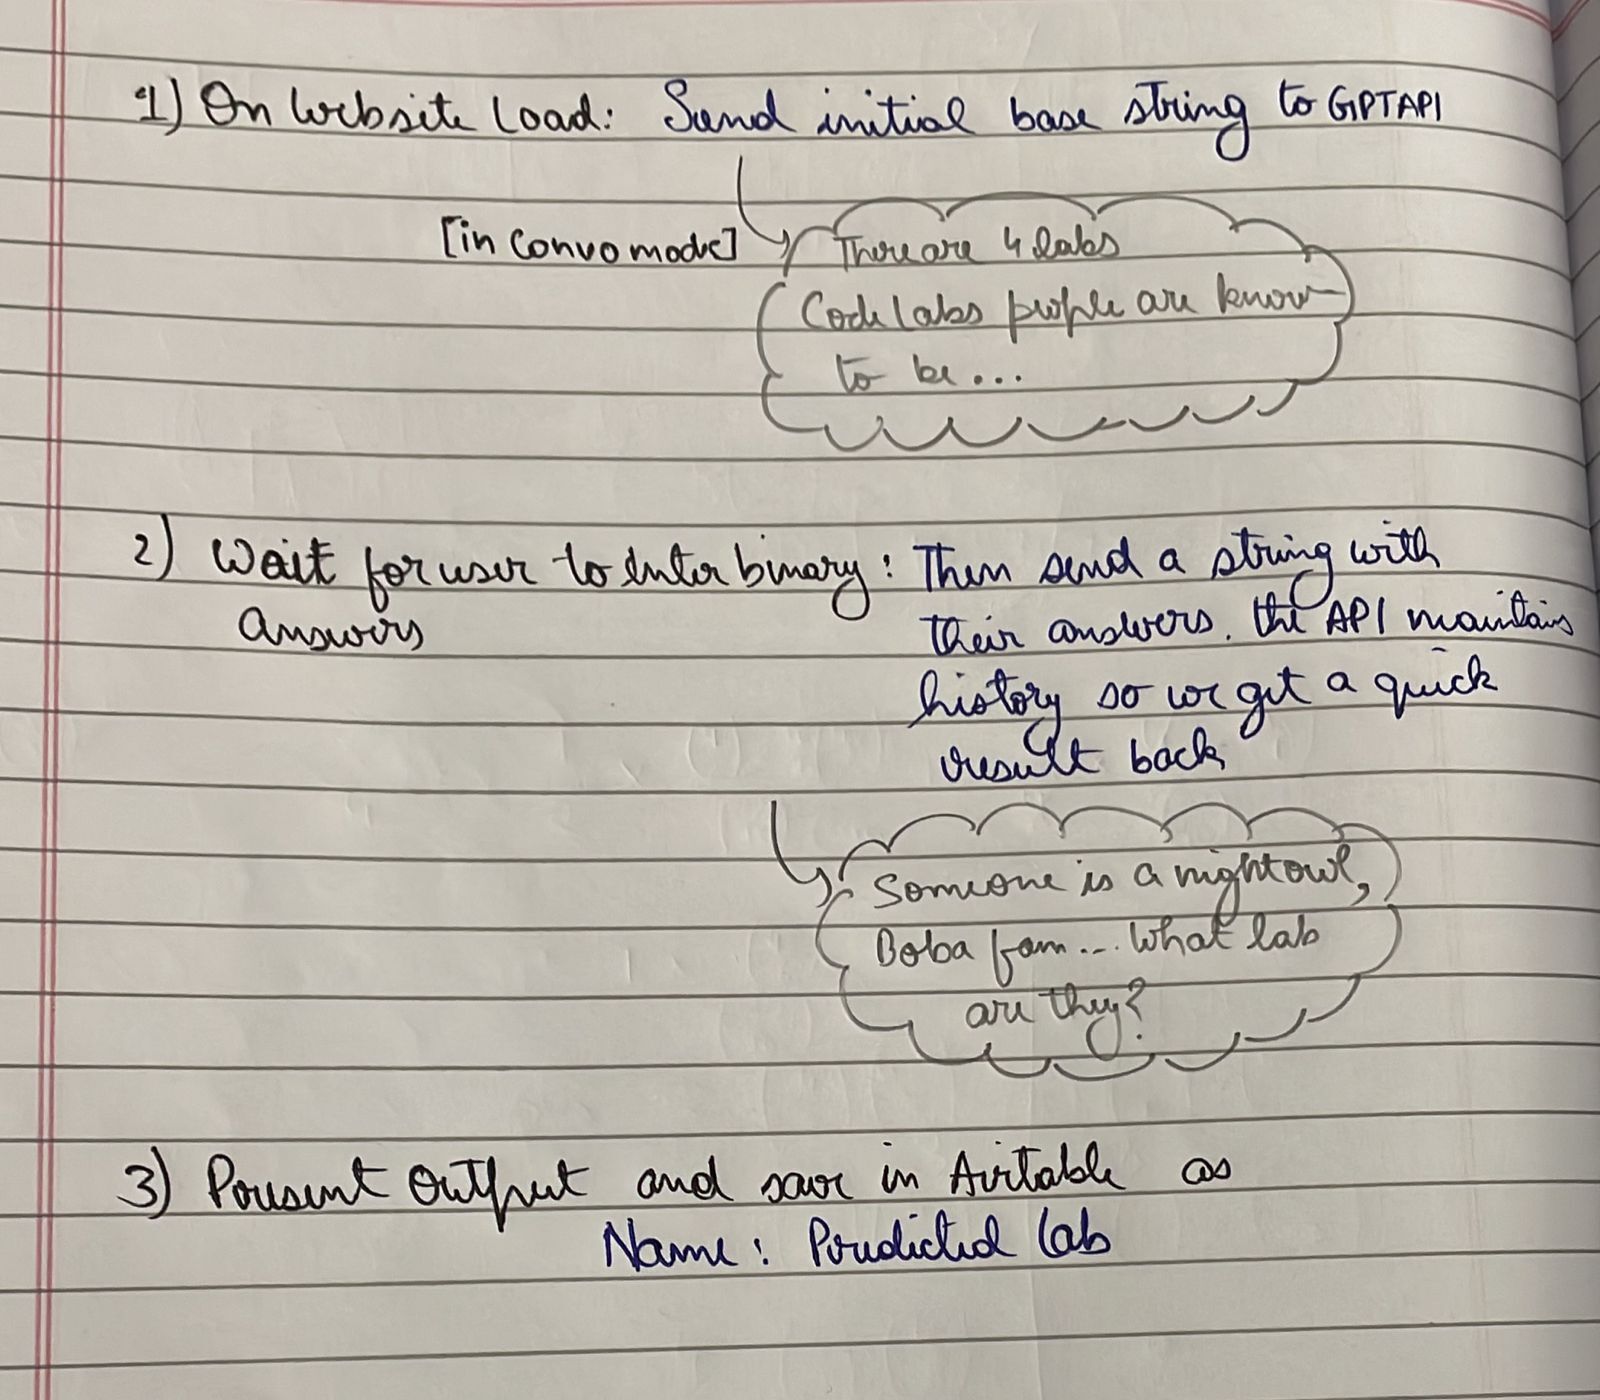 1) On Website Load: Send initial base string to GPTAPI
[in Convo mode]
There are 4 labs
Code labs people are know
to be...
2) Wait for user to enter binary: Then send a string with
answers
their answers. the API maintains
history so we get a quick
result back
Someone is a nightowl,
Boba fam... What lab
are they?
3) Present Output and save in Airtable as
Name: Predicted lab